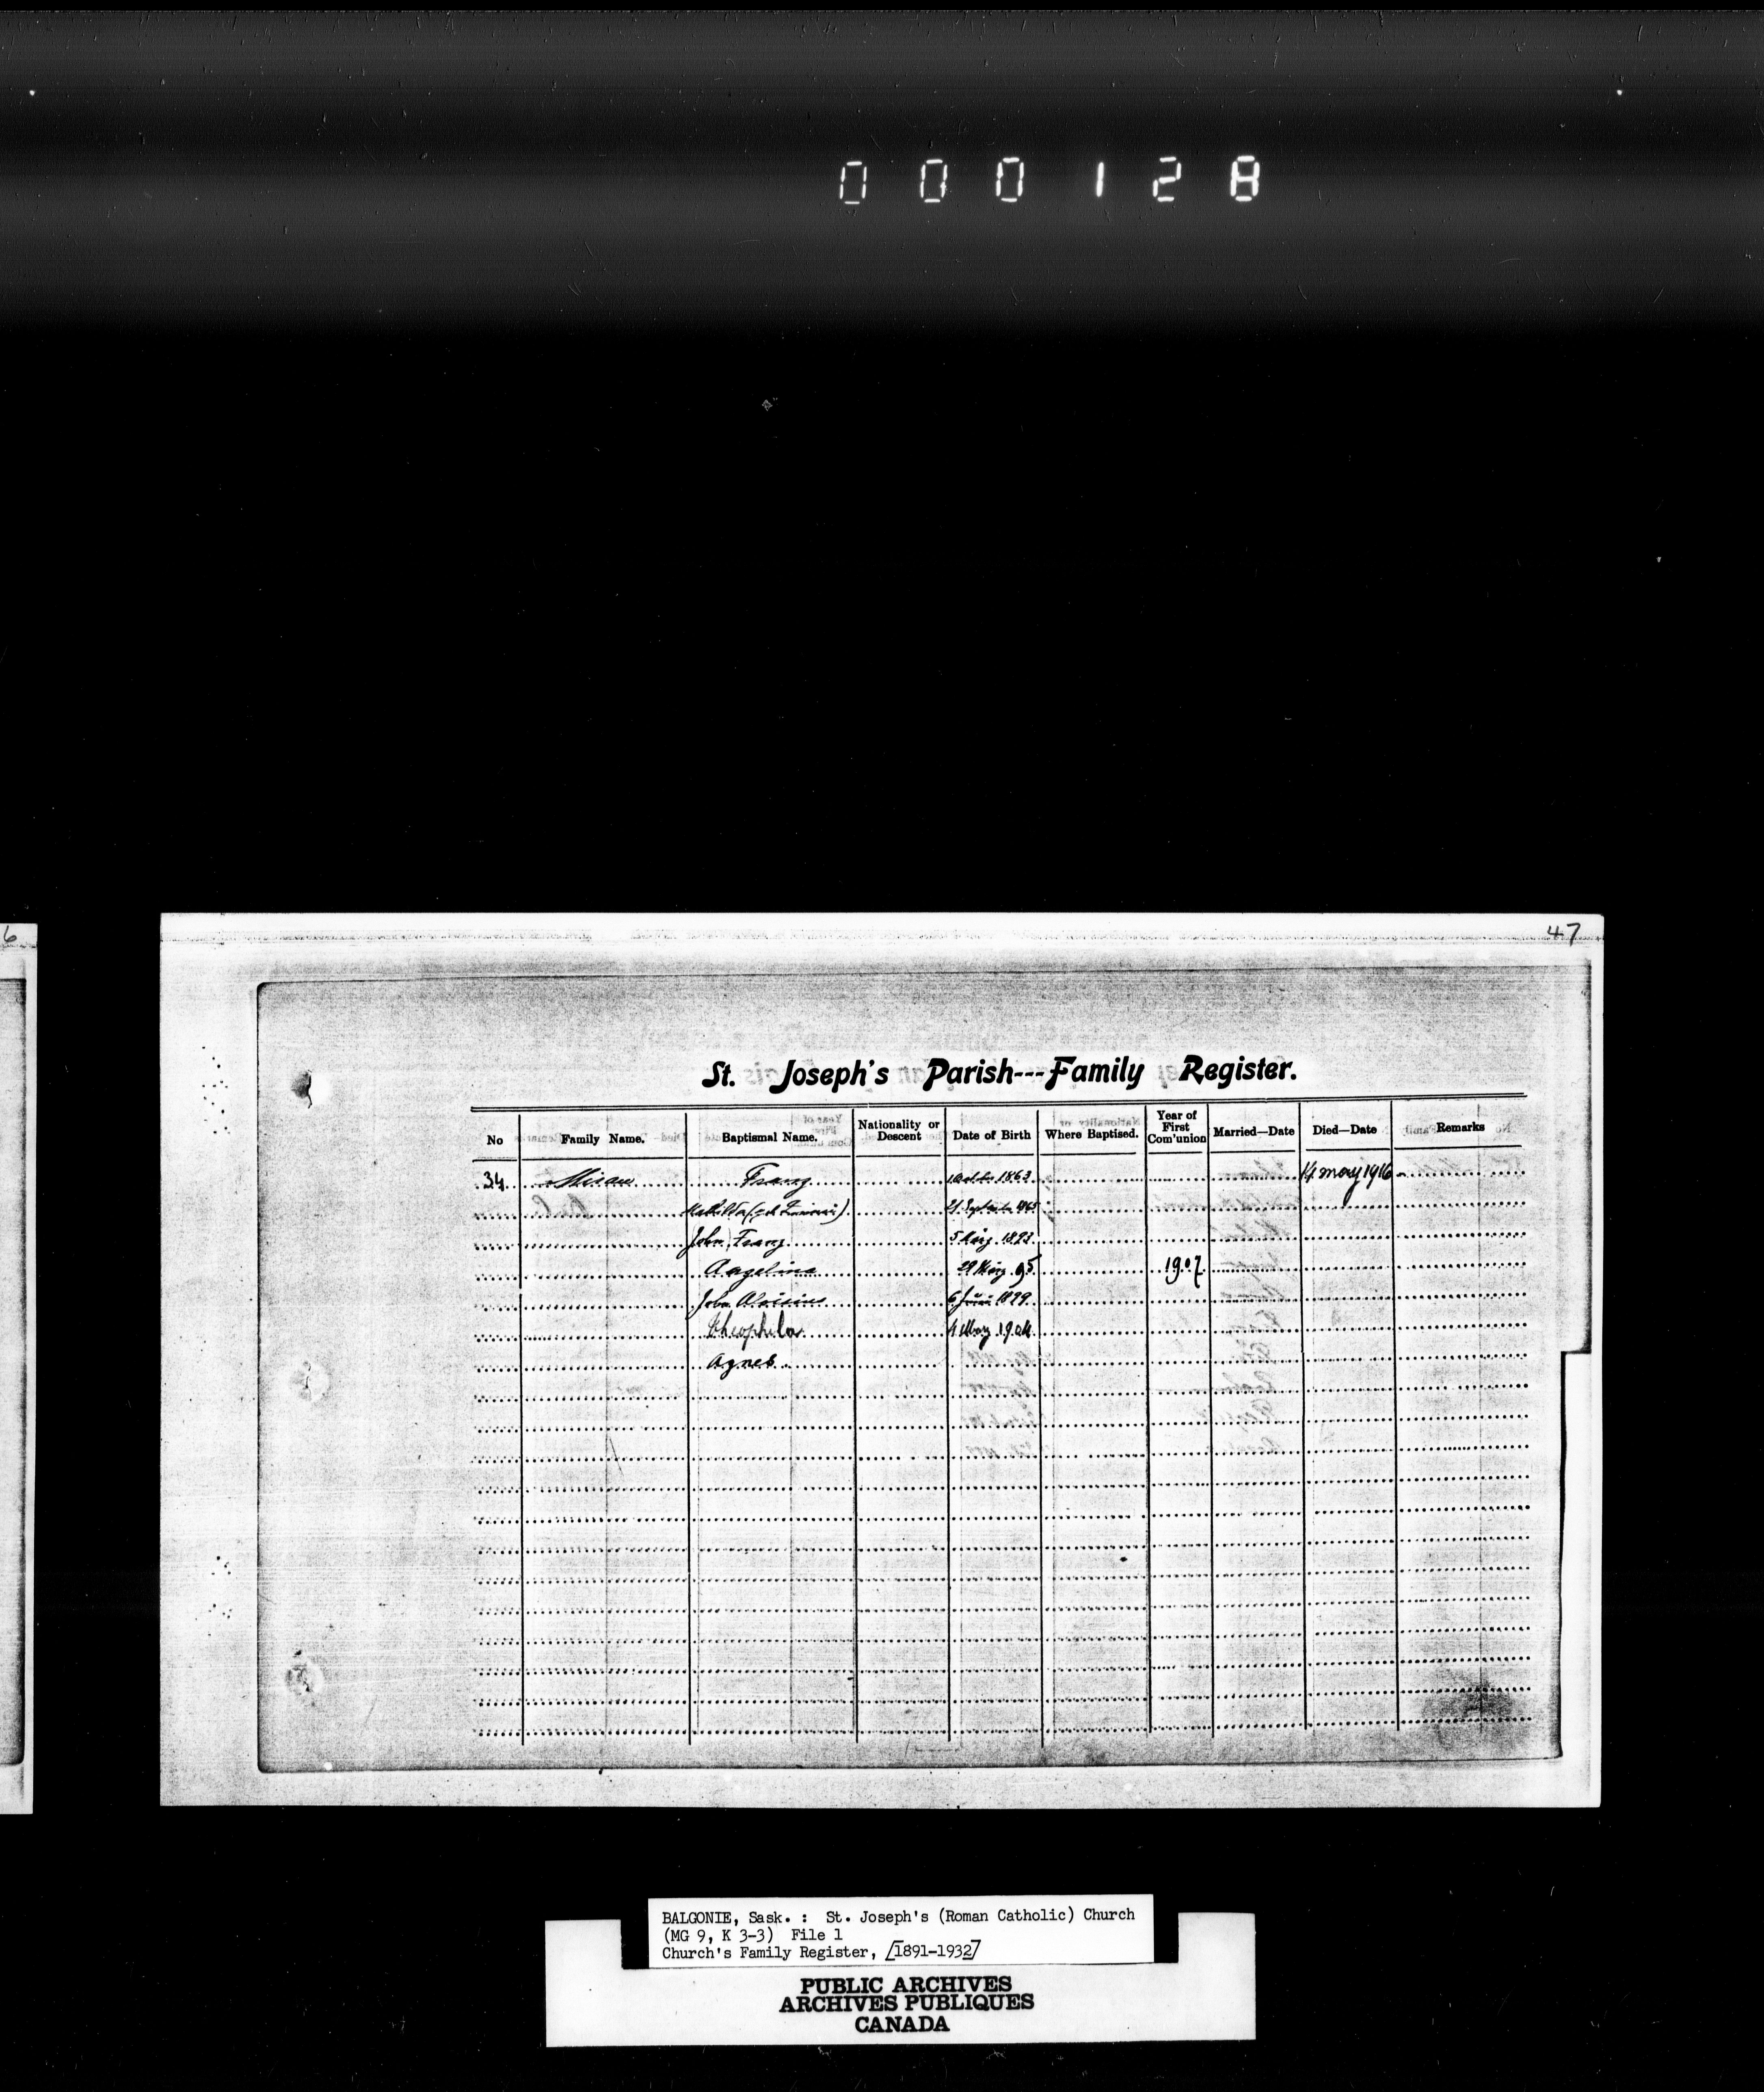 000128
6
47
St. Joseph's Parish---Family Register.
No Family Name. Baptismal Name. Nationality or Descent Date of Birth Where Baptised. Year of First Com'union Married—Date Died—Date Remarks
34 Franz 1863 14 may 1916
Mathilda
John Franz 5 März 1893
Angelina 29 März 95 1907
John Aloisius 6 1899
Theophila 4 May 1904
Agnes
BALGONIE, Sask. : St. Joseph's (Roman Catholic) Church
(MG 9, K 3-3) File 1
Church's Family Register, [1891-1932]
PUBLIC ARCHIVES
ARCHIVES PUBLIQUES
CANADA